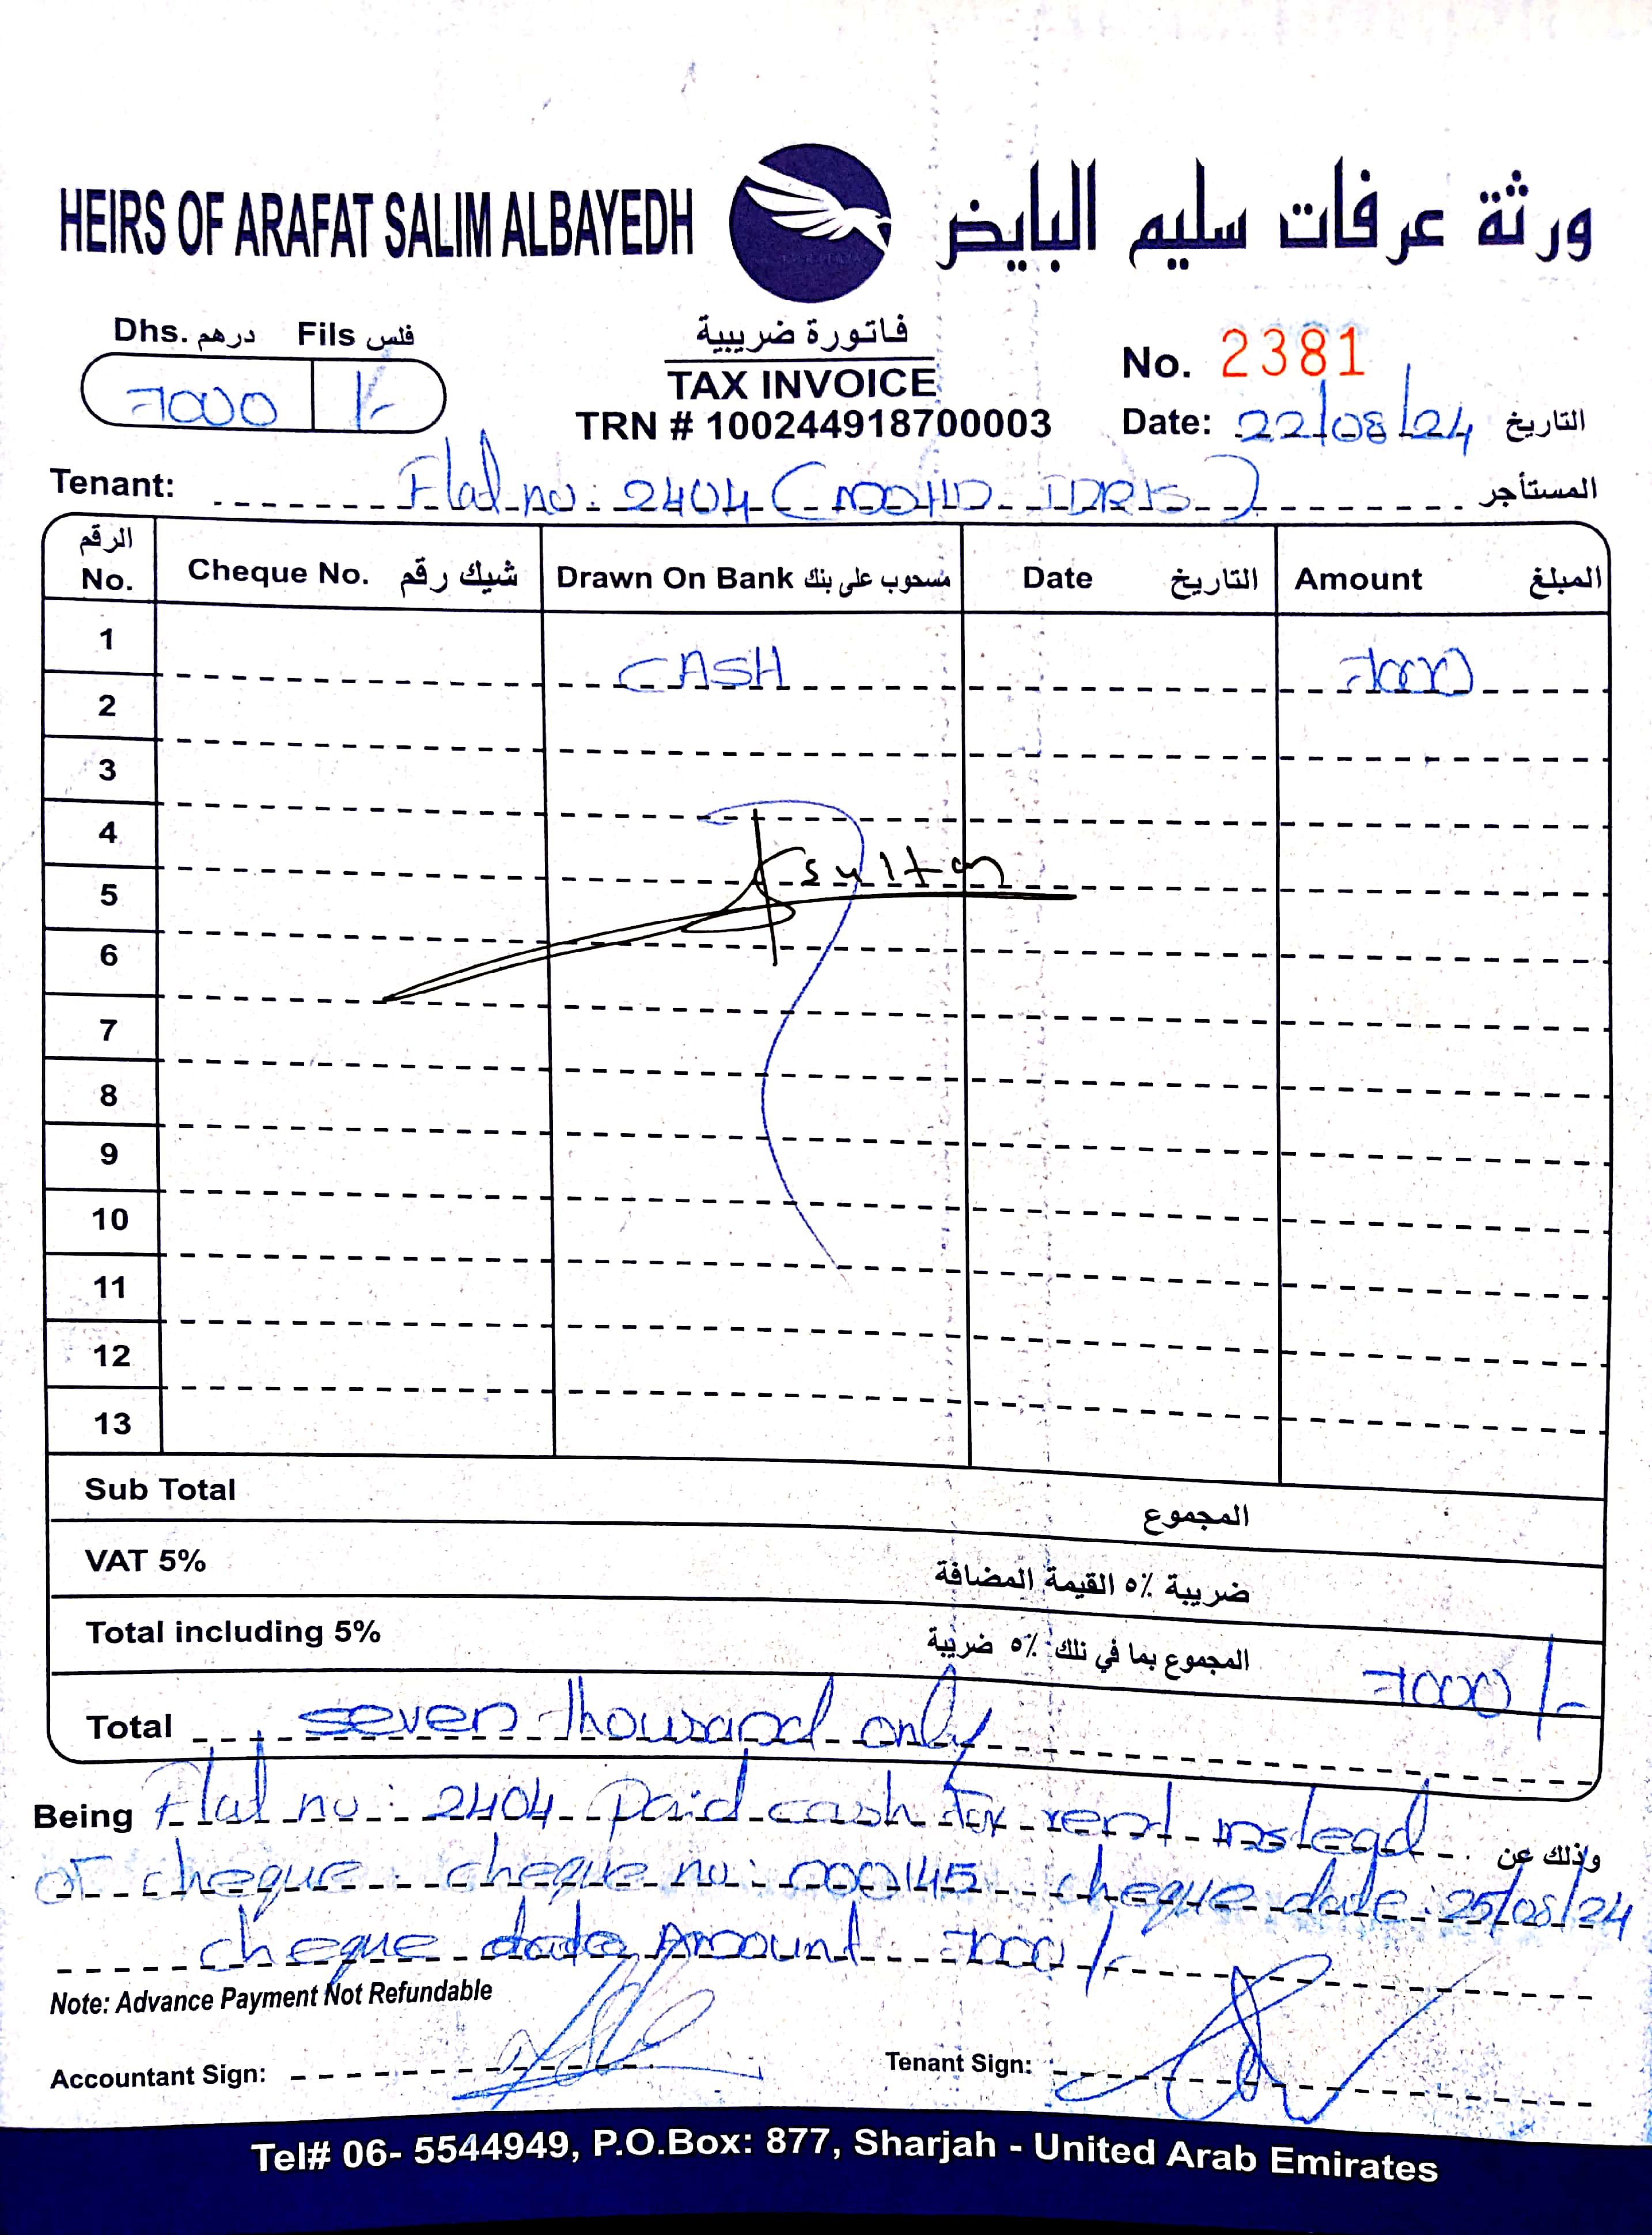 HEIRS OF ARAFAT SALIM ALBAYEDH ورثة عرفات سليم البايض
Dhs. درهم Fils فلس
7000 /-
فاتورة ضريبية
TAX INVOICE
TRN # 100244918700003
No. 2381
Date: 22/08/24 التاريخ
Tenant: Flat no: 2404 (MOHD IDRIS) المستأجر
الرقم No. Cheque No. شيك رقم Drawn On Bank مسحوب على بنك Date التاريخ Amount المبلغ
1 CASH 7000
2
3
4
5 sultan
6
7
8
9
10
11
12
13
Sub Total المجموع
VAT 5% ضريبة ٥٪ القيمة المضافة
Total including 5% المجموع بما في ذلك ٥٪ ضريبة 7000/-
Total seven thousand only
Being Flat no: 2404 Paid cash for rent instead وذلك عن
of cheque. cheque no: 000145 cheque date: 25/08/24
cheque date Amount 7000/-
Note: Advance Payment Not Refundable
Accountant Sign: Tenant Sign:
Tel# 06- 5544949, P.O.Box: 877, Sharjah - United Arab Emirates